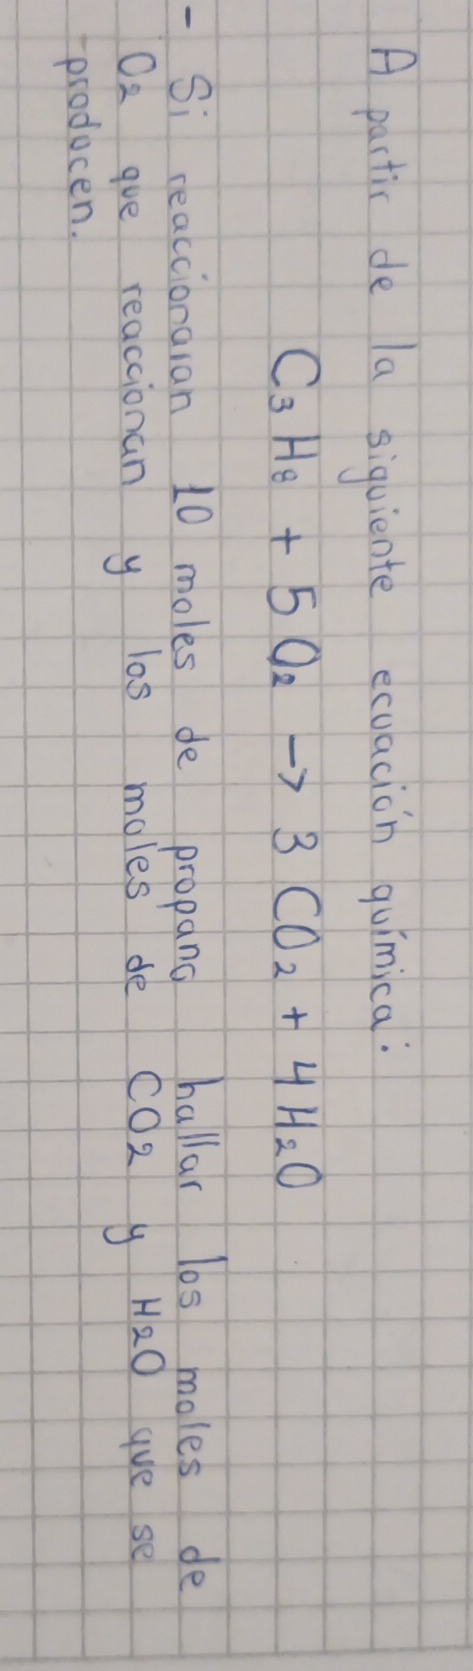 A partir de la siguiente ecuación química:
C₃H₈ + 5 O₂ → 3 CO₂ + 4 H₂O
- Si reaccionaran 10 moles de propano hallar los moles de
O₂ que reaccionan y los moles de CO₂ y H₂O que se
producen.